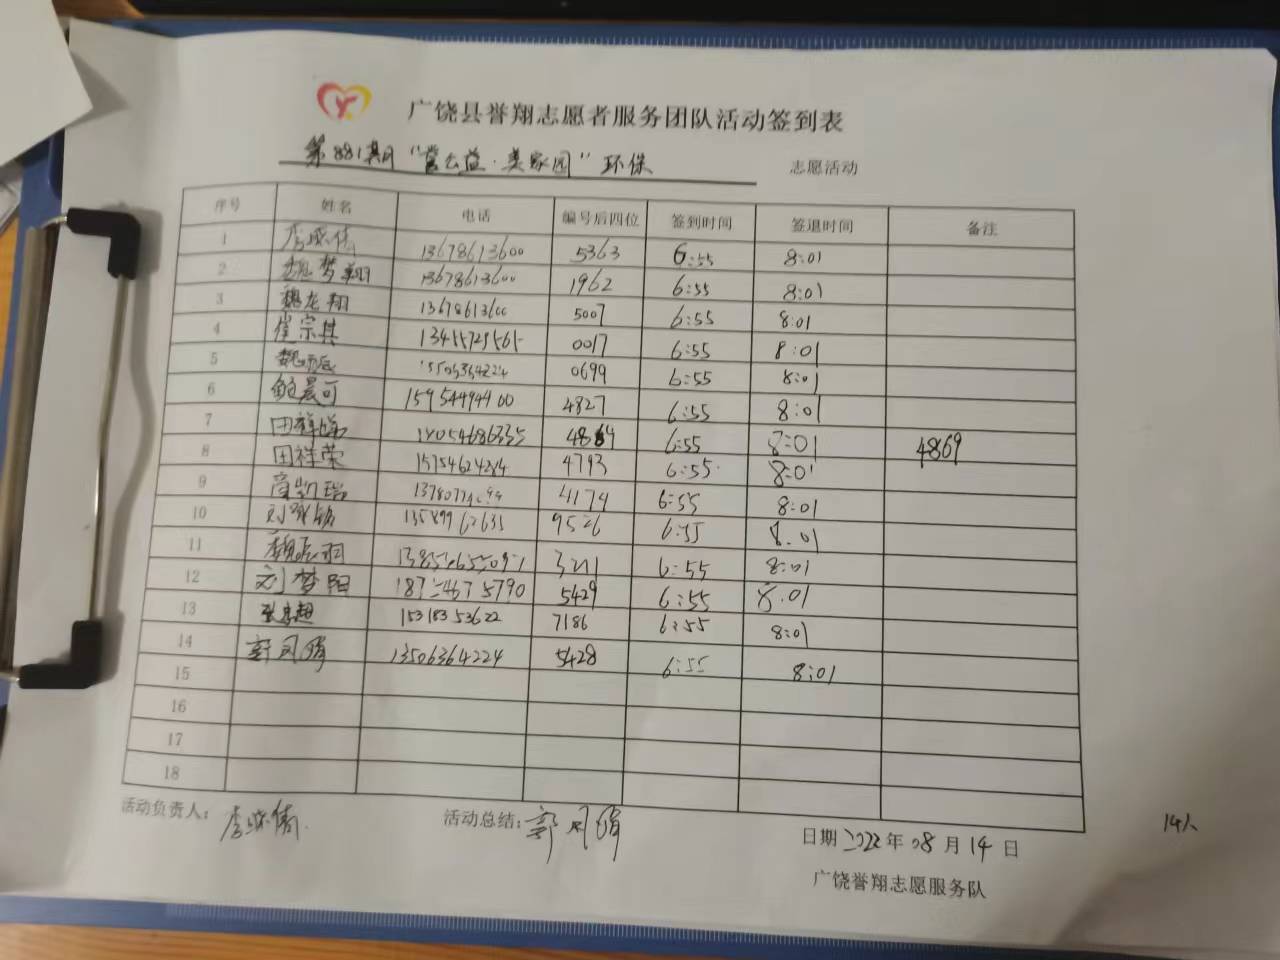 广饶县誉翔志愿者服务团队活动签到表
第881期"营公益·美家园"环保 志愿活动
序号 姓名 电话 编号后四位 签到时间 签退时间 备注
1 13678613600 5363 6:55 8:01
2 魏梦翔 13678613600 1962 6:55 8:01
3 魏龙翔 1367861360 5007 6:55 8:01
4 崔宗其 0017 6:55 8:01
5 0699 6:55 8:01
6 鲍晨可 15954494400 4827 6:55 8:01
7 田祥瑞 18054686335 4869 6:55 8:01 4869
8 田祥荣 4793 6:55 8:01
9 4174 6:55 8:01
10 9526 6:55 8:01
11 魏辰羽 3211 6:55 8:01
12 刘梦阳 5429 6:55 8:01
13 15318353622 7186 6:55 8:01
14 郭凤娟 13506364224 5428 6:55 8:01
15
16
17
18
活动负责人: 活动总结:郭凤娟
日期2022年08月14日
14人
广饶誉翔志愿服务队